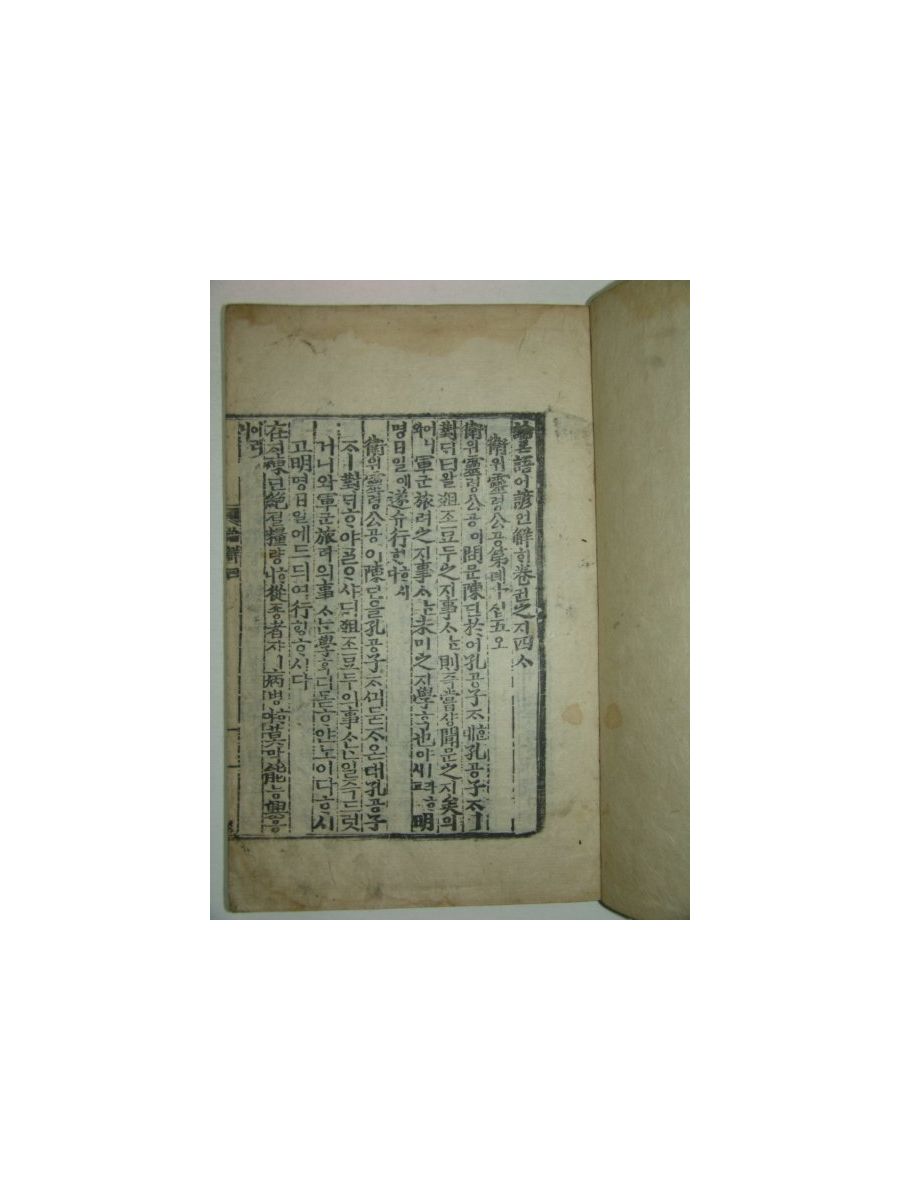 論론語어諺언解ᄒᆡ卷권之지四ᄉᆞ
衛위靈령公공第뎨十십五오
衛위靈령公공이問문陳딘於어孔공子ᄌᆞᄒᆞᆫ대孔공子ᄌᆞㅣ
對ᄃᆡ曰왈俎조豆두之지事ᄉᆞᄂᆞᆫ則즉嘗샹聞문之지矣의
어니와軍군旅려之지事ᄉᆞᄂᆞᆫ未미之지學ᄒᆞᆨ也야ㅣ라ᄒᆞ시고明
명日일에遂슈行ᄒᆡᆼᄒᆞ시다
衛위靈령公공이陳딘을孔공子ᄌᆞᄭᅴ묻ᄌᆞ온대孔공子
ᄌᆞㅣ對ᄃᆡᄒᆞ야ᄀᆞᆯᄋᆞ샤ᄃᆡ俎조豆두의事ᄉᆞᄂᆞᆫ일즉드럿
거니와軍군旅려의事ᄉᆞᄂᆞᆫ學ᄒᆞᆨ디몯ᄒᆞ얀노이다ᄒᆞ시
고明명日일에드듸여行ᄒᆡᆼᄒᆞ시다
在ᄌᆡ陳딘絶졀糧량ᄒᆞ니從죵者쟈ㅣ病병ᄒᆞ야莫막能능興흥
이러니
論解四